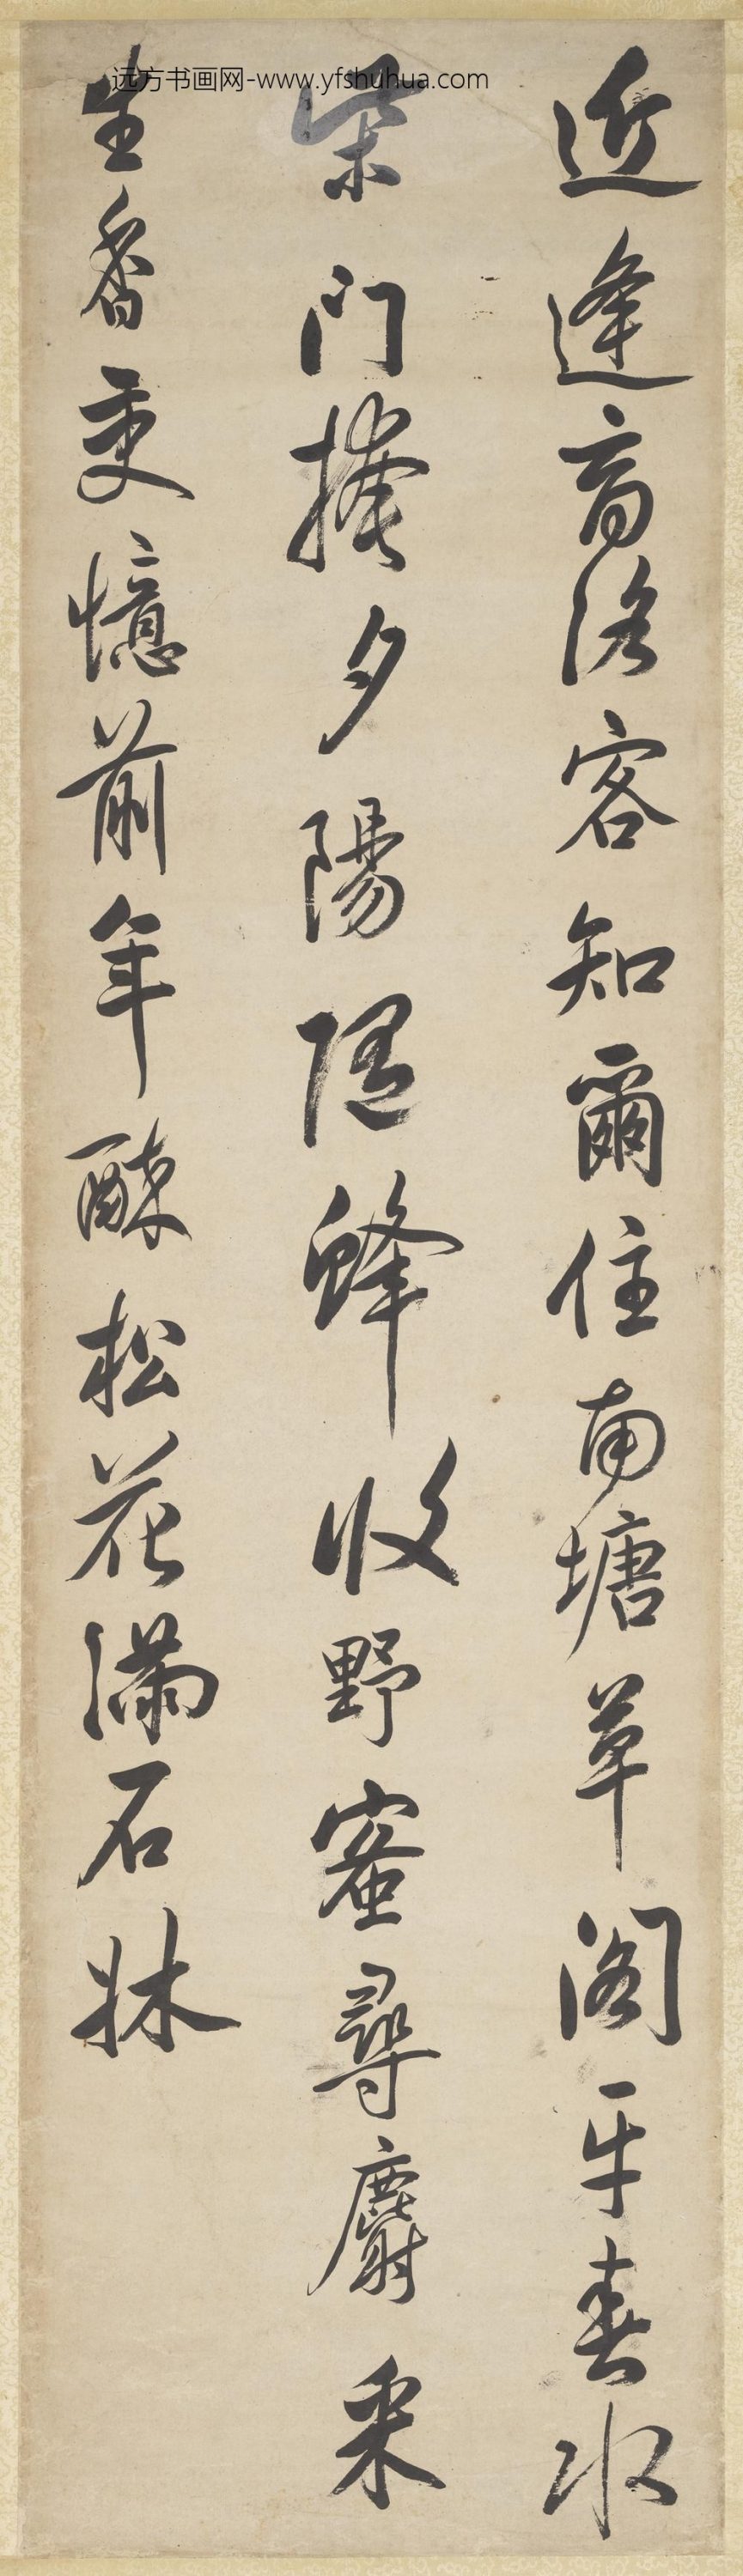 远方书画网-www.yfshuhua.com
近逢商洛客知爾住南塘草閣平春水
柴門掩夕陽隨蜂收野蜜尋麝采
生香更憶前年醉松花滿石牀